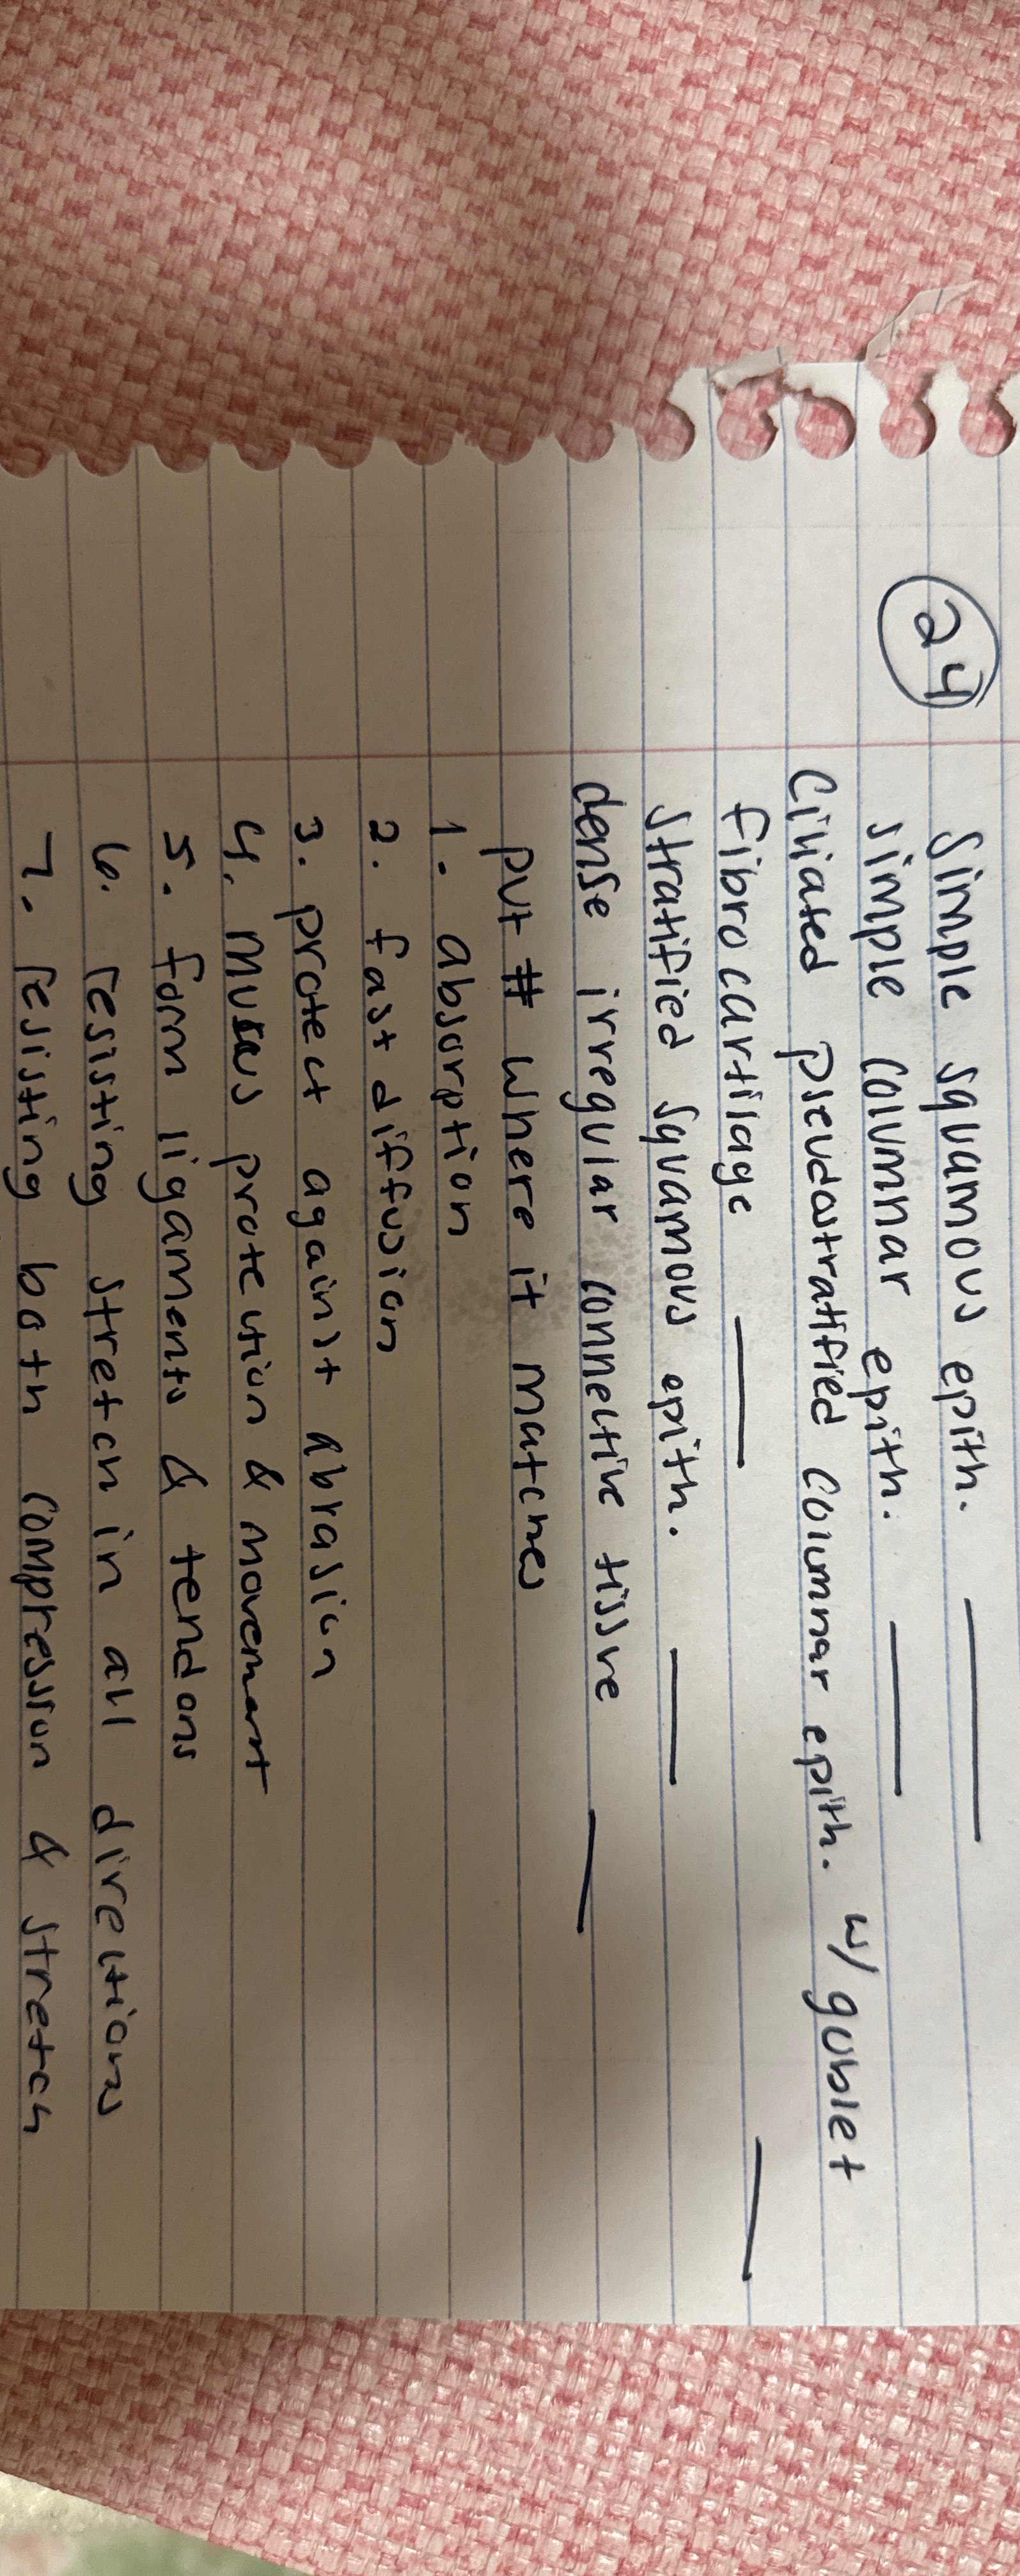 24
Simple squamous epith. ____
simple columnar epith. ____
Ciliated pseudostratified columnar epith. w/ goblet ____
fibrocartilage ____
Stratified squamous epith. ____
dense irregular connective tissue ____
put # where it matches
1. absorption
2. fast diffusion
3. protect against abrasion
4. mucus protection & movement
5. form ligaments & tendons
6. resisting stretch in all directions
7. resisting both compression & stretch